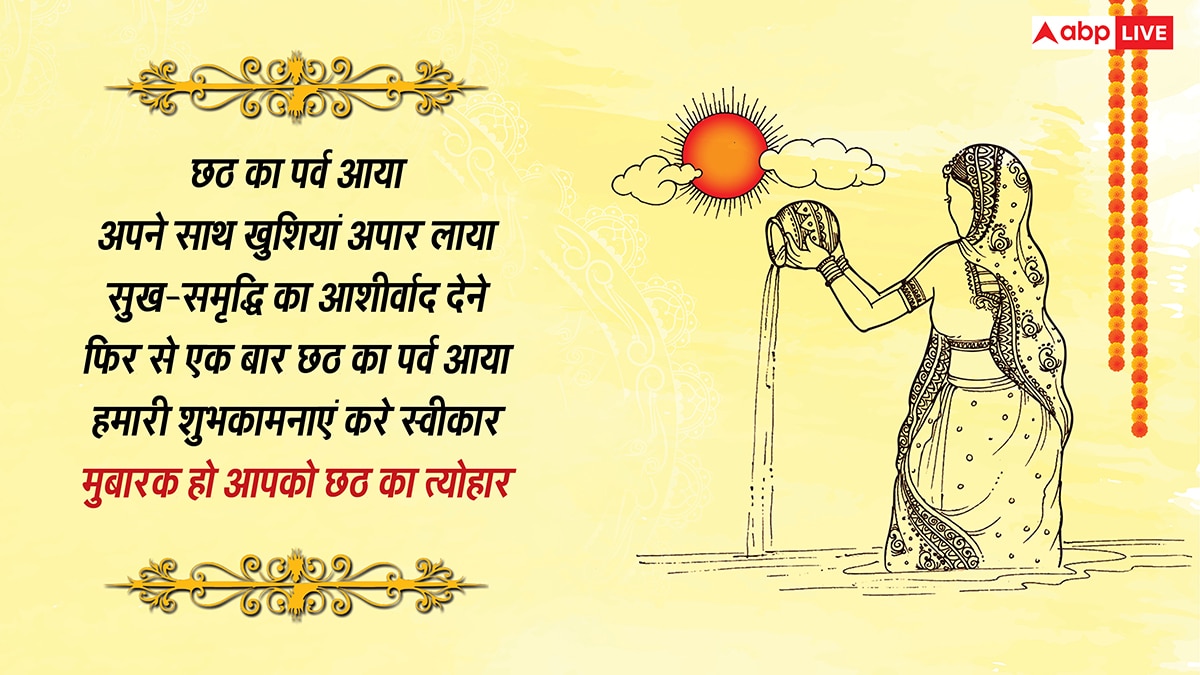 abp LIVE
छठ का पर्व आया
अपने साथ खुशियां अपार लाया
सुख-समृद्धि का आशीर्वाद देने
फिर से एक बार छठ का पर्व आया
हमारी शुभकामनाएं करे स्वीकार
मुबारक हो आपको छठ का त्योहार